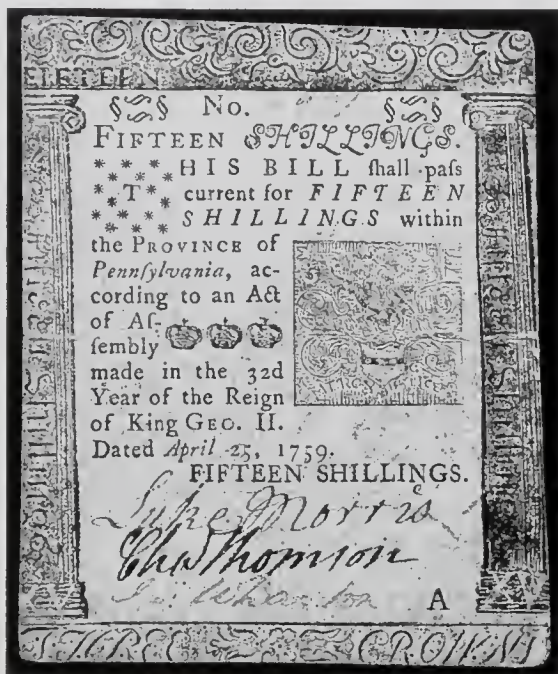 No.
FIFTEEN SHILLINGS.
THIS BILL ſhall paſs
current for FIFTEEN
SHILLINGS within
the PROVINCE of
Pennſylvania, ac-
cording to an Act
of Aſ-
ſembly
made in the 32d
Year of the Reign
of King GEO. II.
Dated April 25, 1759.
FIFTEEN SHILLINGS.
Luke Morris
Cha Thomson
A
THREE CROWNS